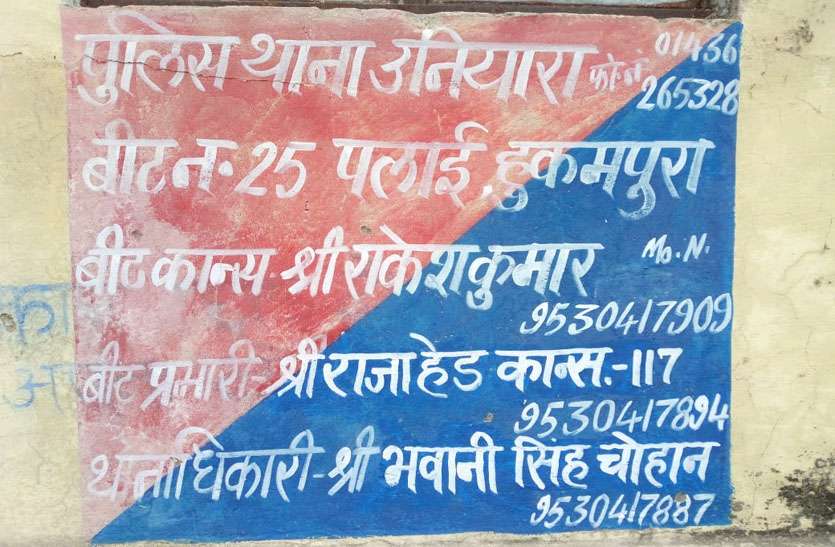 पुलिस थाना उनियारा फो.नं. 01436
265328
बीट न. 25 पलाई, हुकमपुरा
बीट कान्स. श्री राकेश कुमार Mo. N.
9530417909
बीट प्रभारी - श्री राजा हेड कान्स. - 117
9530417894
थानाधिकारी - श्री भवानी सिंह चोहान
9530417887